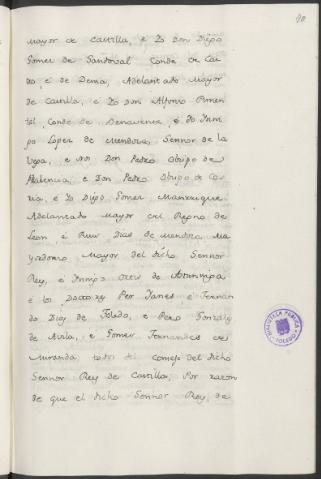 90
Mayor de Castilla, e Yo Don Diego
Gomez de Sandoval Conde de Cas
tro, é de Denia, Adelantado Mayor
de Castilla, e Yo Don Alfonso Pimen
tel, Conde de Benavente, e Yo Inni
go Lopez de Mendoza Sennor de la
Vega, e nos Don Pedro Obispo de
Palencia, e Don Pedro Obispo de Co
ria, é Yo Diego Gomez Manrrique
Adelantado Mayor del Regno de
Leon, é Rui Dias de Mendoza Ma
yordomo Mayor del dicho Sennor
Rey, é Innigo Ortiz de Astunniga
é los Doctores Per Yanes, é Fernan
do Diez de Toledo, e Pero Gonzalez
de Avila, e Gomez Fernandez de
Miranda todos del Consejo del dicho
Sennor Rey de Castilla, Por razon
de que el dicho Sennor Rey, de
BIBLIOTECA PUBLICA
TOLEDO